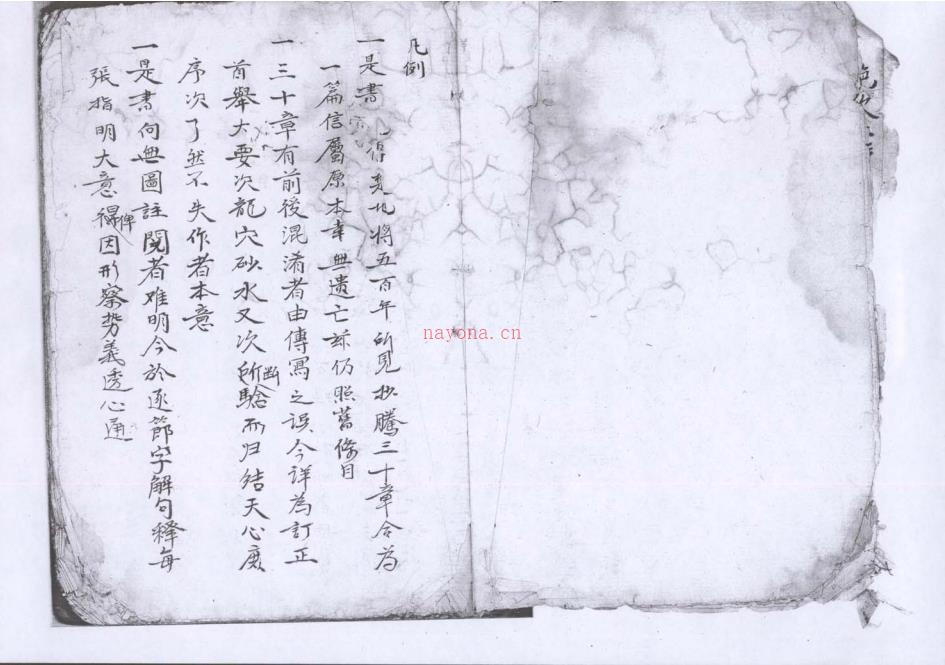 凡例
一是書 得 九將五百年所見抄騰三十章合為
一篇信屬原本幸無遺亡玆仍照舊條目
一三十章有前後混淆者由傳寫之誤今詳為訂正
首舉大要次龍穴砂水又次所斷驗而归結天心庶
序次了然不失作者本意
一是書向無圖註閱者难明今於逐節字解句釋每
張指明大意俾得因形察势義透心通
nayona.cn